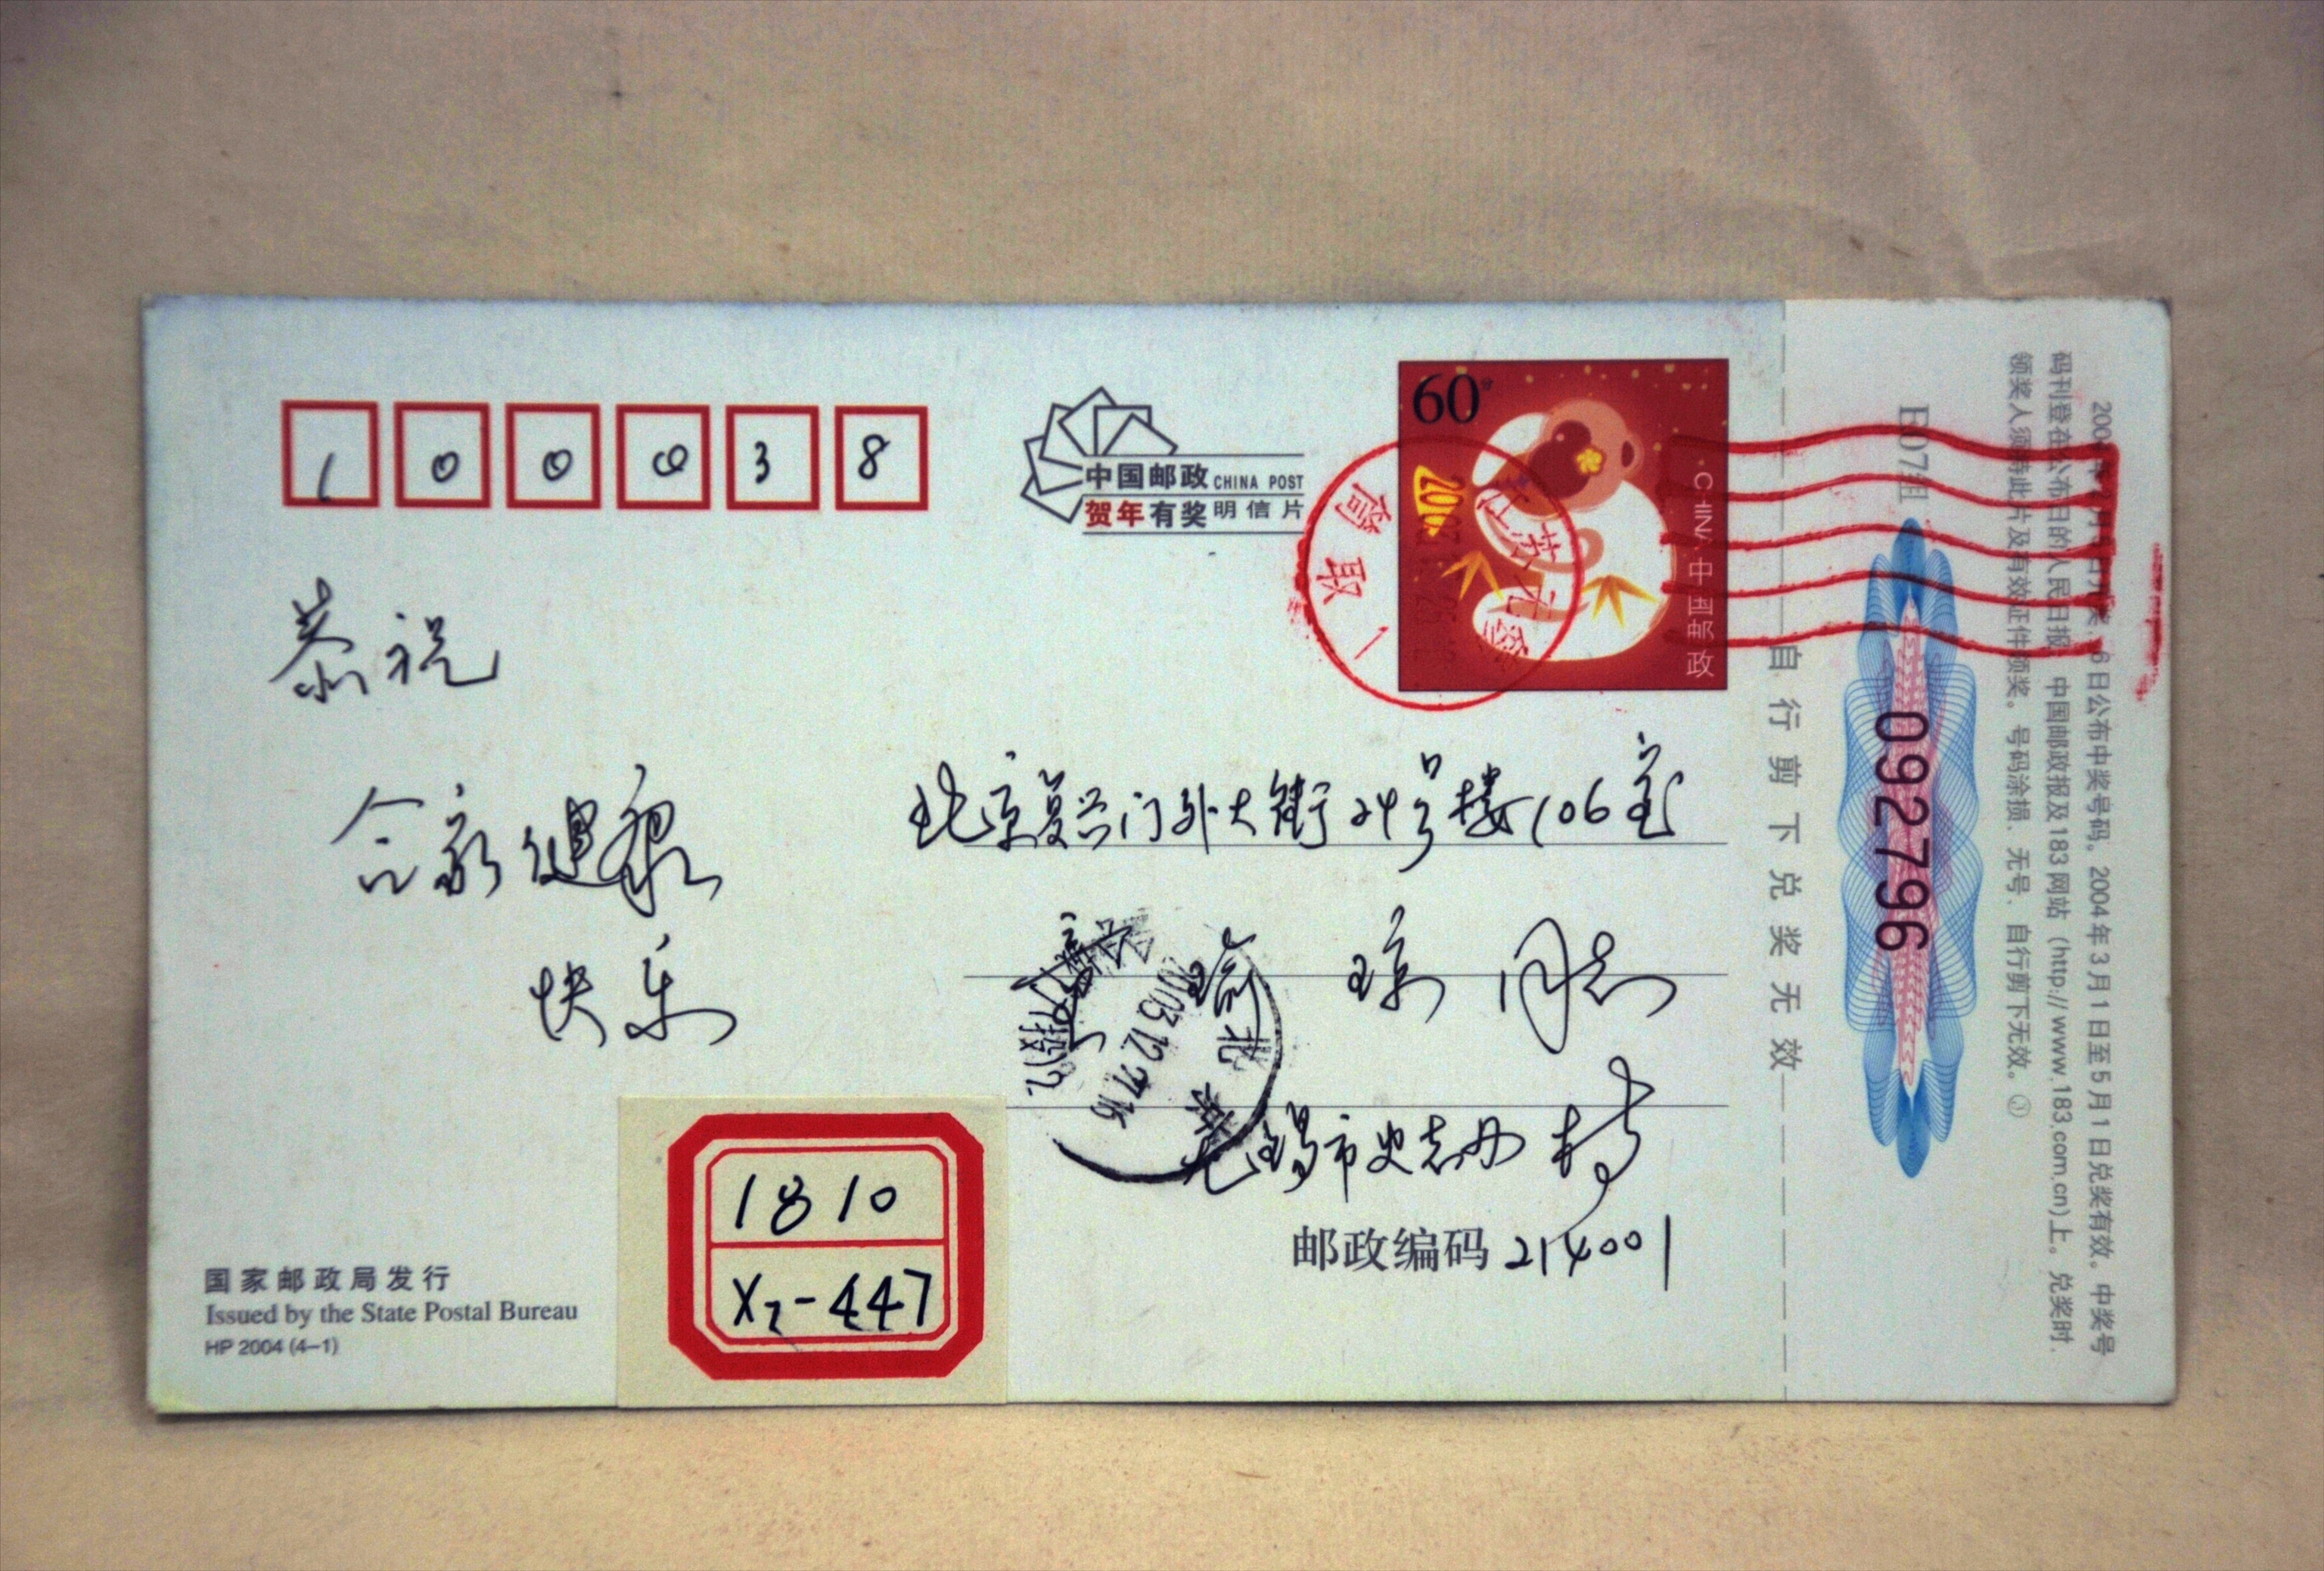 100038
中国邮政 CHINA POST
贺年有奖明信片
60分
2004
CHINA 中国邮政
恭祝
合家健康
快乐
北京复兴门外大街24号楼106室
瑜琼同志
无锡市史志办
邮政编码 214001
2003.12.27.16
北京
1810
X2-447
国家邮政局发行
Issued by the State Postal Bureau
HP 2004 (4-1)
自行剪下兑奖无效
E07组
092796
6日公布中奖号码。2004年3月1日至5月1日兑奖有效。中奖号
码刊登在公布日的人民日报、中国邮政报及183网站（http://www.183.com.cn)上。兑奖时,
领奖人须持此片及有效证件领奖。号码涂损、无号、自行剪下无效。